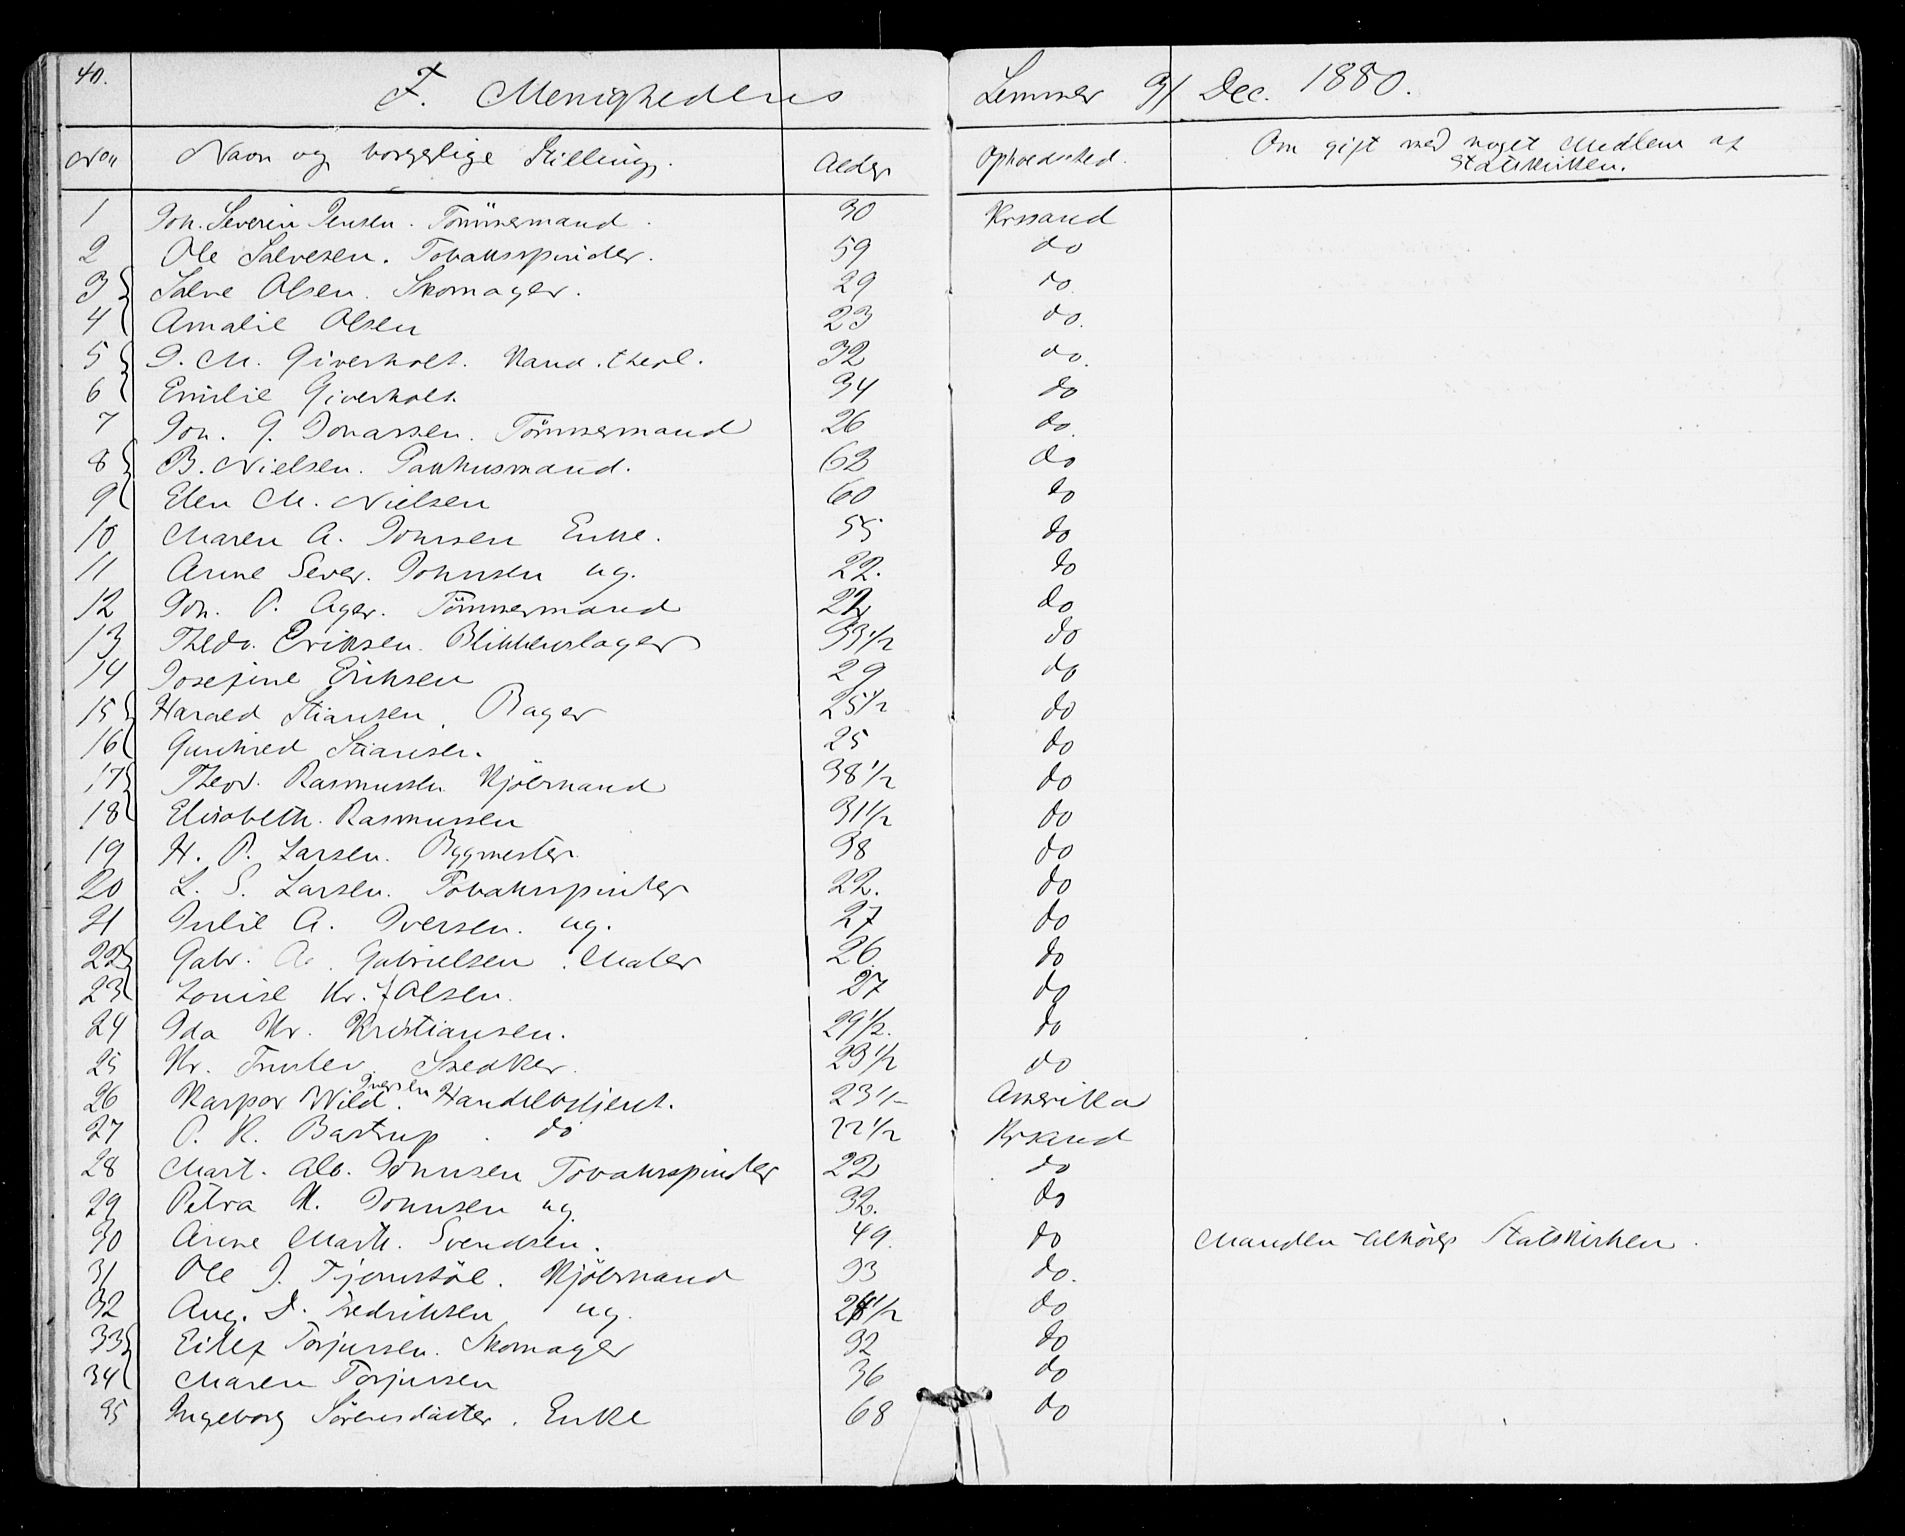 40.
F. Menighedens Lemmer 9/ Dec. 1880.
Non Navn og borgerlige Stilling. Alder Opholdssted. Om gift med noget Medlem af
Statskirken.
1 Joh. Severin Jensen. Tömmermand. 30 Krssand
2 Ole Salvesen. Tobaksspinder. 59 do
3 Salve Olsen. Skomager. 29 do
4 Amalie Olsen 23 do.
5 J. M. Giverholt. Kand. theol. 32 do.
6 Emilie Giverholt. 34 do
7 Joh. G. Jonassen. Tömmermand 26 do.
8 B. Nielsen. Pakhusmand. 62 do
9 Elen M. Nielsen 60 do
10 Maren A. Johnsen Enke. 55 do
11 Anne Sever. Johnsen ug. 22. do
12 Joh. P. Ager. Tömmermand do
13 Thedr. Eriksen. Blikkenslager 33 1/2 do
14 Josefine Eriksen 29 do
15 Harald Stiansen. Bager 25 1/2 do
16 Gunhild Stiansen. 25 do
17 Theod. Rasmussen Kjöbmand 38 1/2 do
18 Elisabeth. Rasmussen 31 1/2 do
19 H. P. Larsen. Bygmester. 38 do
20 L. S. Larsen. Tobaksspinder 22. do
21 Julie A. Iversen. ug. 27 do
22 Gabr. A. Gabrielsen. Maler 26. do
23 Louise Kr. f Olsen. 27 do
24 Ida Kr. Kristiansen. 29 1/2. do
25 Kr. Snedker. 23 1/2 do
Iversen
26 Kaspar Wild. Handelsbetjent. 23 1/2 Amerikka
27 P. K. Bastrup. do 22 1/2 Krsand
28 Mart. Alb. Johnsen Tobaksspinder 22 do
29 Petra K. Johnsen ug. 32. do
30 Anne Marth. Svendsen. 49. do Manden tilhörer Statskirken.
31 Ole J. Tjomstöl. Kjöbmand 33 do.
32 Aug. D. Fredriksen ug. do
33 Eilef Torjussen. Skomager 32 do
34 Maren Torjussen 36 do
35 Ingeborg Sörensdatter. Enke 68 do